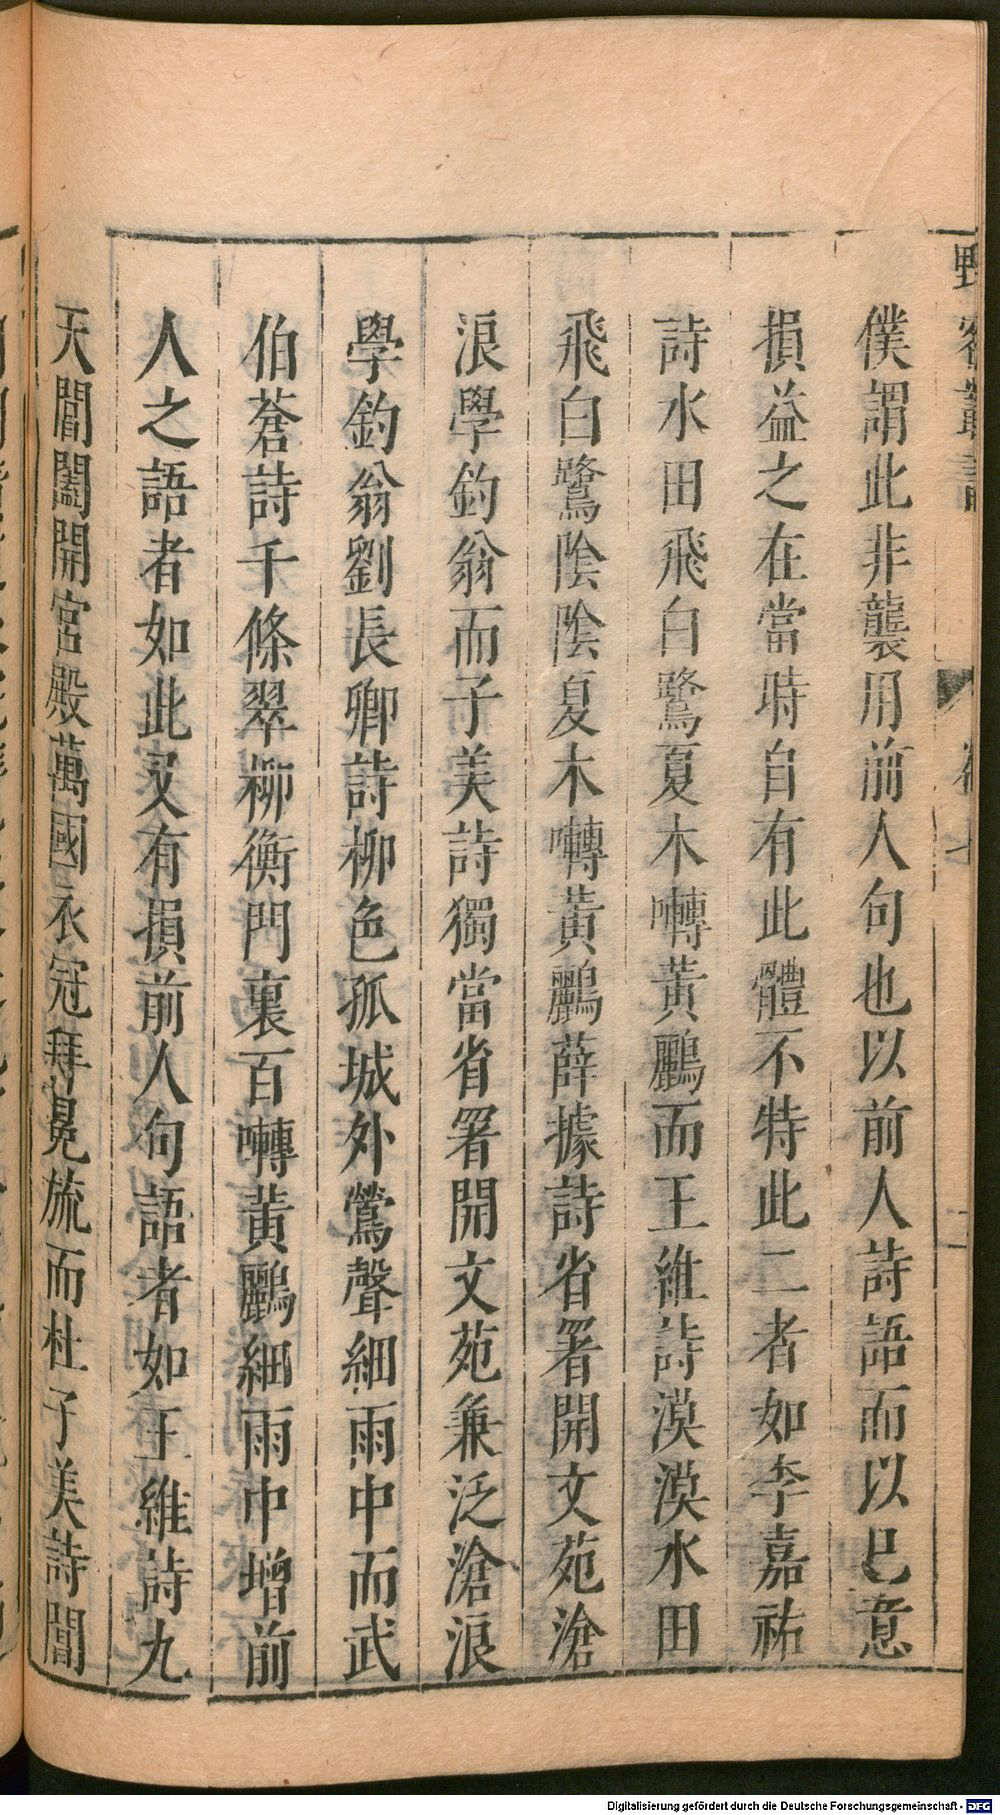 野客叢書
卷七
二
僕謂此非襲用前人句也以前人詩語而以已意
損益之在當時自有此體不特此二者如李嘉祐
詩水田飛白鷺夏木囀黃鸝而王維詩漠漠水田
飛白鷺陰陰夏木囀黃鸝薛據詩省署開文苑滄
浪學釣翁而子美詩獨當省署開文苑兼泛滄浪
學釣翁劉長卿詩柳色孤城外鶯聲細雨中而武
伯蒼詩千條翠柳衡門裏百囀黃鸝細雨中增前
人之語者如此又有損前人句語者如王維詩九
天閶闔開宮殿萬國衣冠拜冕旒而杜子美詩閶
Digitalisierung gefördert durch die Deutsche Forschungsgemeinschaft - DFG